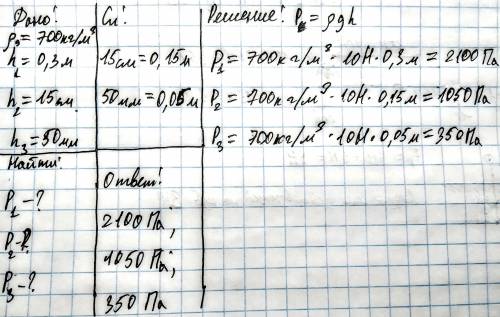 Дано:
ρ₃ = 700кг/м³
h₁ = 0,3м
h₂ = 15см
h₃ = 50мм
Найти:
P₁ - ?
P₂ - ?
P₃ - ?
Си:
15см = 0,15м
50мм = 0,05м
Ответ:
2100 Па;
1050 Па;
350 Па
Решение: P = ρgh
P₁ = 700кг/м³ · 10Н · 0,3м = 2100Па
P₂ = 700кг/м³ · 10Н · 0,15м = 1050Па
P₃ = 700кг/м³ · 10Н · 0,05м = 350Па